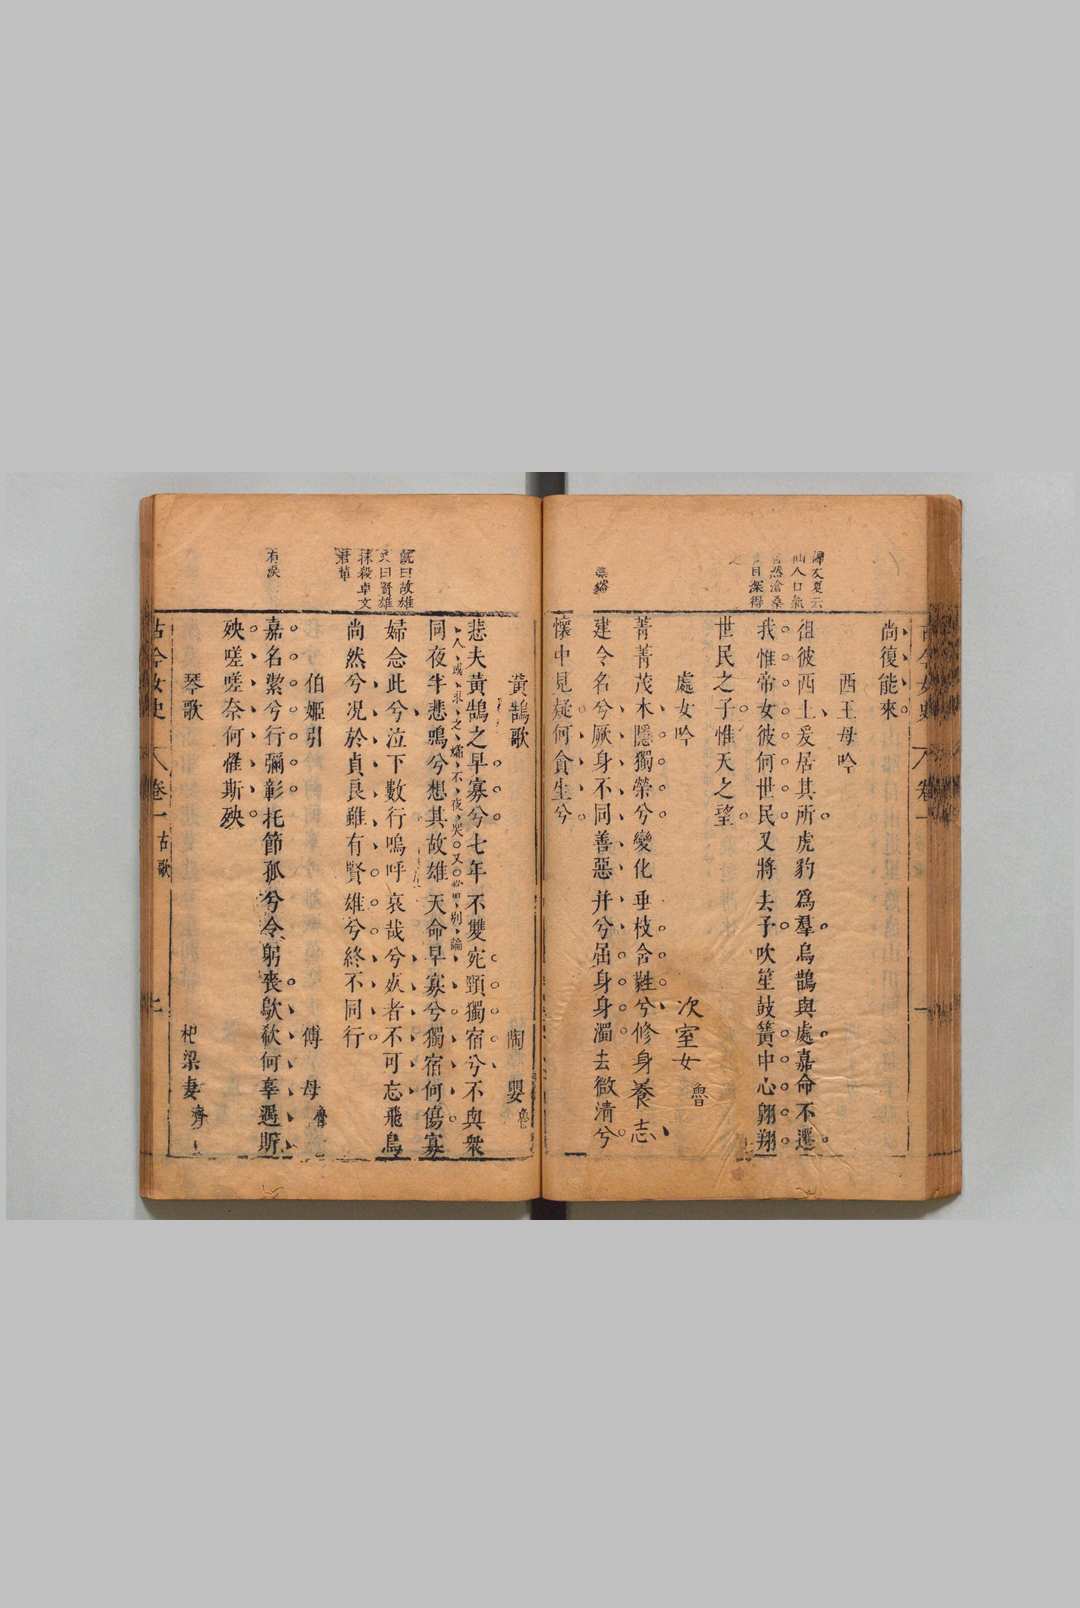 尚復能來
西王母吟
徂彼西土爰居其所虎豹爲羣烏鵲與處嘉命不遷
我惟帝女彼何世民又將去予吹笙鼓簧中心翱翔
世民之子惟天之望
處女吟
次室女 魯
菁菁茂木隱獨榮兮變化垂枝含蕤兮修身養志
建令名兮厥身不同善惡并兮屈身身濁去微清兮
懷中見疑何貪生兮
黃鵠歌
陶嬰 魯
悲夫黃鵠之早寡兮七年不雙宛頸獨宿兮不與衆
同夜半悲鳴兮想其故雄天命早寡兮獨宿何傷寡
婦念此兮泣下數行嗚呼哀哉兮死者不可忘飛鳥
尚然兮況於貞良雖有賢雄兮終不同行
旣曰故雄
又曰賢雄
抹殺卓文
君輩
伯姬引
傅母 魯
嘉名潔兮行彌彰托節孤兮令躬喪歇欷何辜遇斯
殃嗟嗟奈何罹斯殃
琴歌
杞梁妻 齊
古今女史 卷一 古歌 七